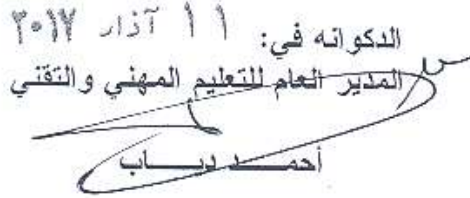 الدكوانه في: ١١ آذار ٢٠١٧
المدير العام للتعليم المهني والتقني
أحمد دياب